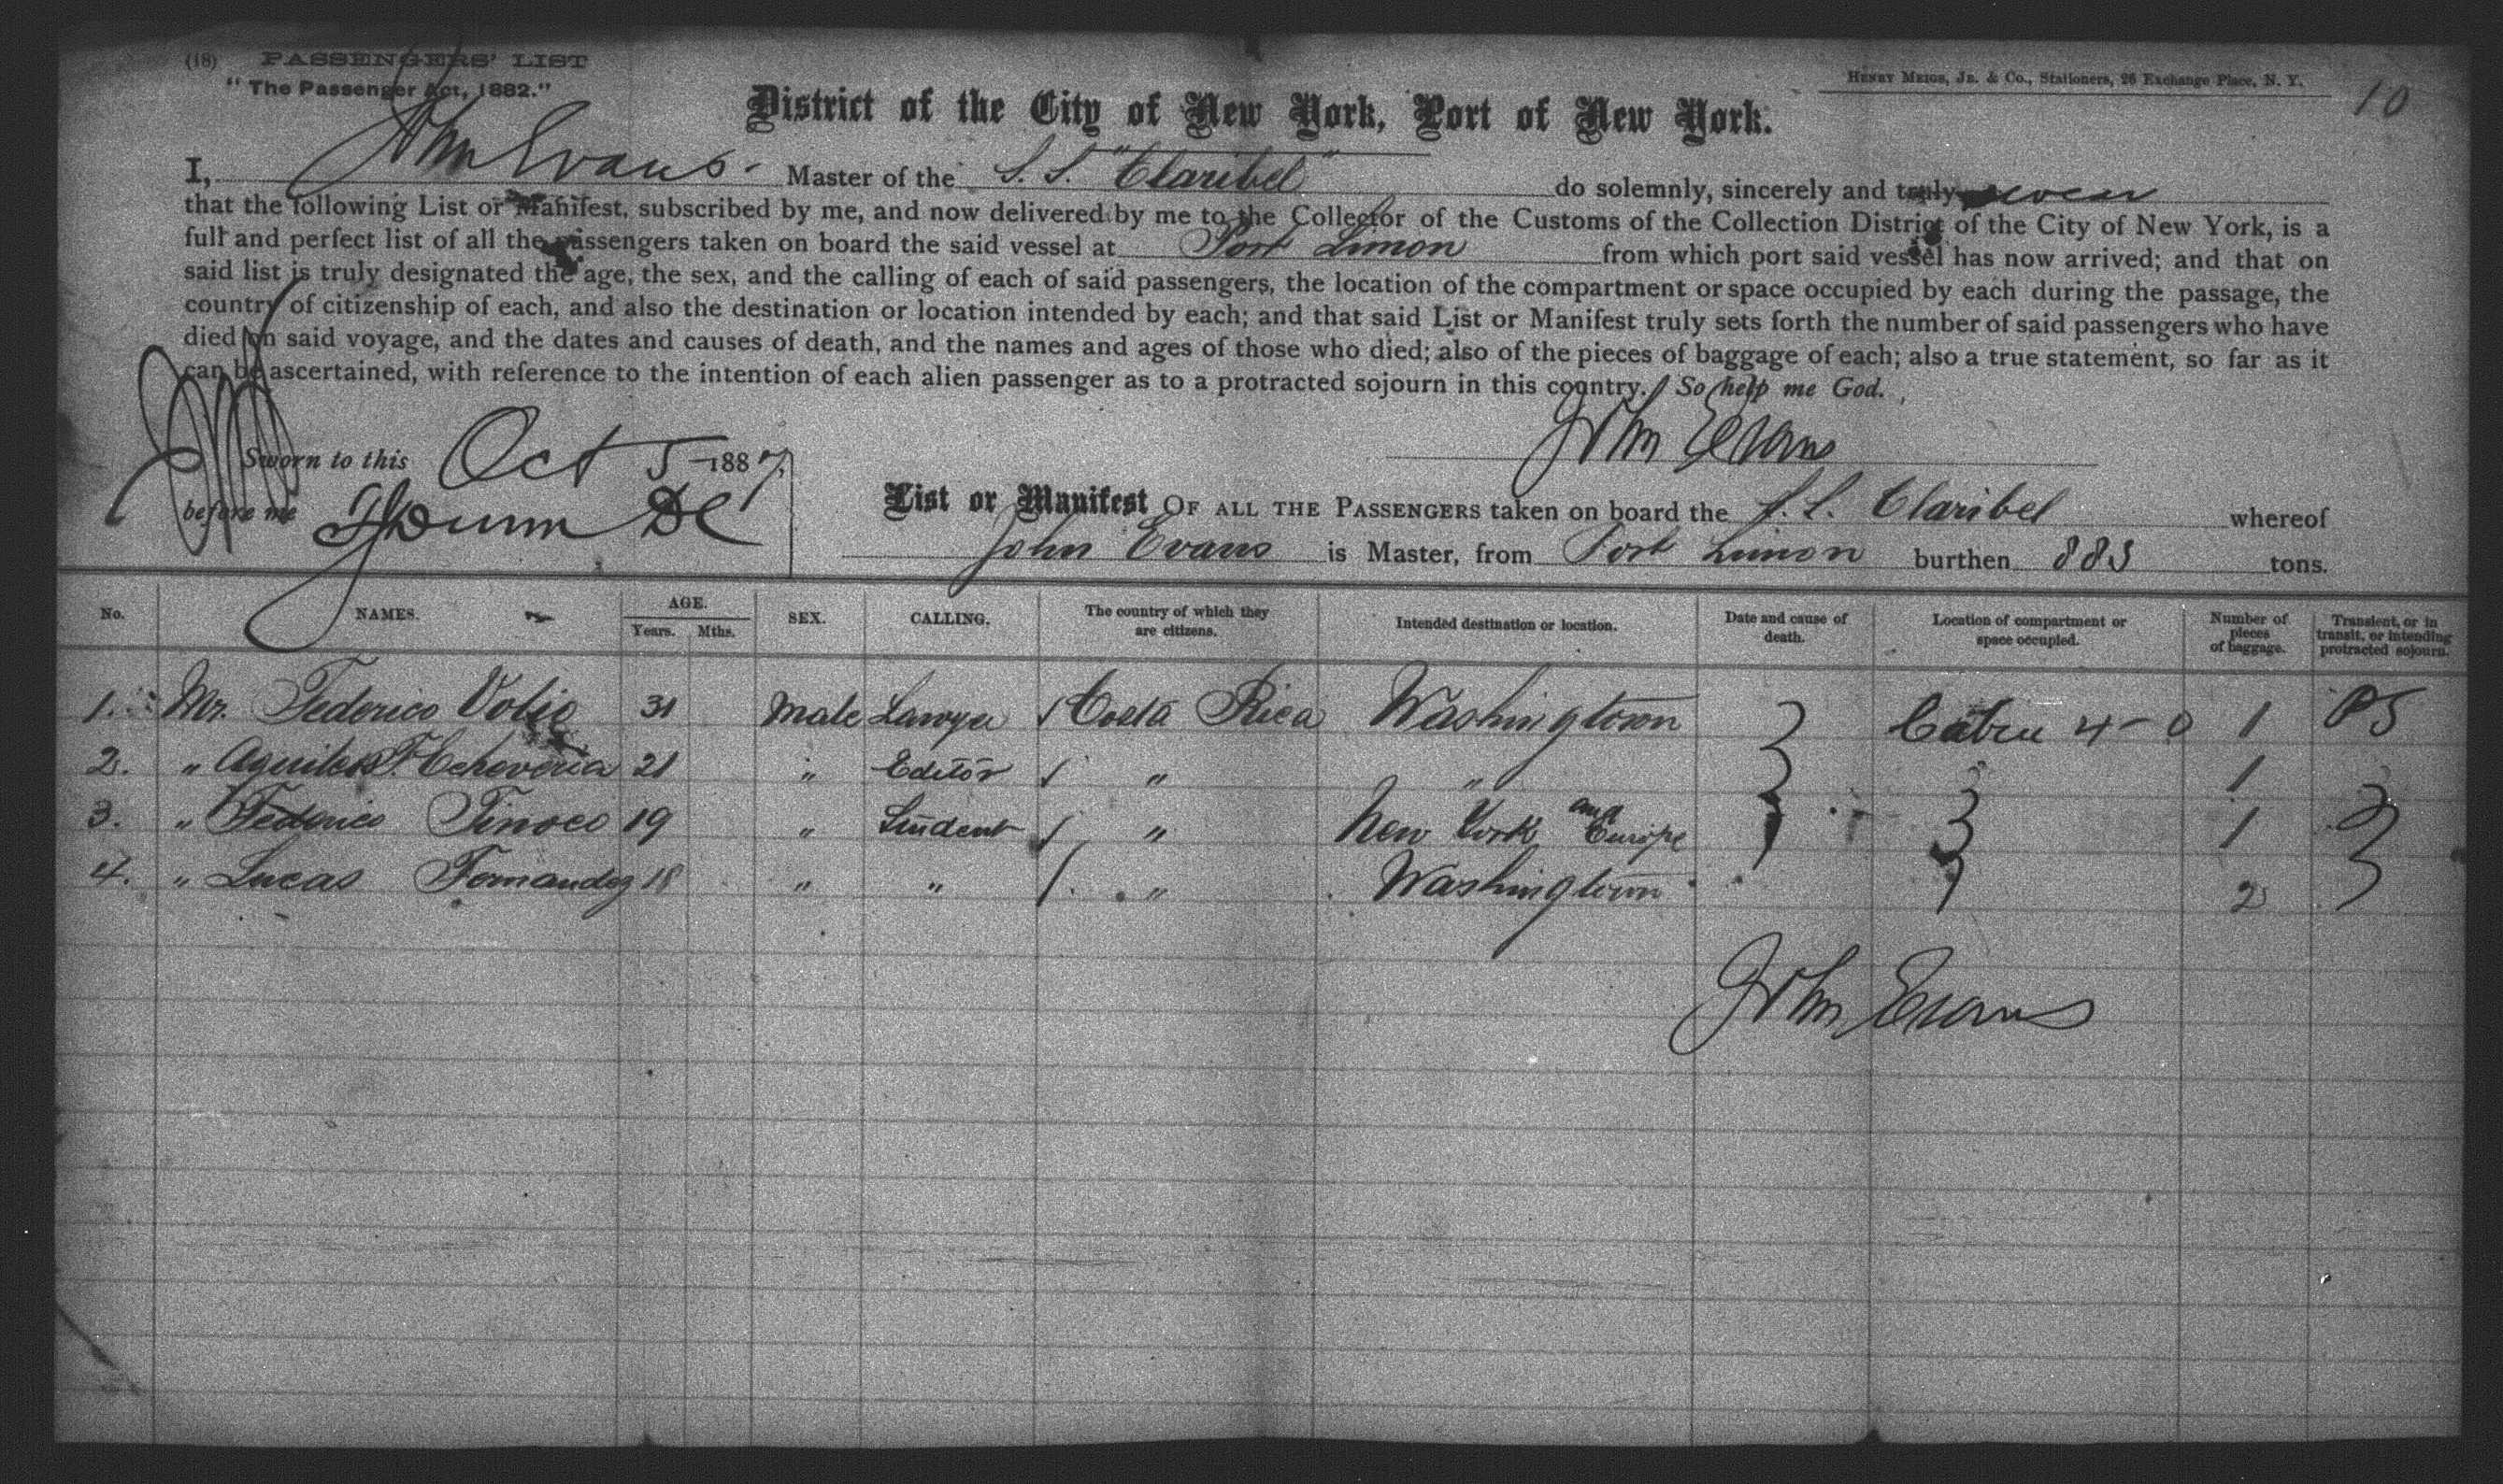 (18) PASSENGERS' LIST
"The Passenger Act, 1882."
HENRY MEIGS, JR. & CO., Stationers, 26 Exchange Place, N. Y.
10
District of the City of New York, Port of New York.
I, John Evans Master of the S. S. "Claribel" do solemnly, sincerely and truly swear
that the following List or Manifest, subscribed by me, and now delivered by me to the Collector of the Customs of the Collection District of the City of New York, is a
full and perfect list of all the passengers taken on board the said vessel at Port Limon from which port said vessel has now arrived; and that on
said list is truly designated the age, the sex, and the calling of each of said passengers, the location of the compartment or space occupied by each during the passage, the
country of citizenship of each, and also the destination or location intended by each; and that said List or Manifest truly sets forth the number of said passengers who have
died on said voyage, and the dates and causes of death, and the names and ages of those who died; also of the pieces of baggage of each; also a true statement, so far as it
can be ascertained, with reference to the intention of each alien passenger as to a protracted sojourn in this country. So help me God.
John Evans
Sworn to this Oct 5 1887,
before me
List or Manifest OF ALL THE PASSENGERS taken on board the S. S. Claribel whereof
John Evans is Master, from Port Limon burthen 883 tons.
No. NAMES. AGE. Years. Mths. SEX. CALLING. The country of which they are citizens. Intended destination or location. Date and cause of death. Location of compartment or space occupied. Number of pieces of baggage. Transient, or in transit, or intending protracted sojourn.
1. Mr. Federico Volio 31 Male Lawyer Costa Rica Washingtown Cabin 4-0 1 PS
2. " Aquiles F. Echeverria 21 " Editor " " 1
3. " Federico Tinoco 19 " Student " New York and Europe 1
4. " Lucas Fernandez 18 " " " Washingtown 2
John Evans